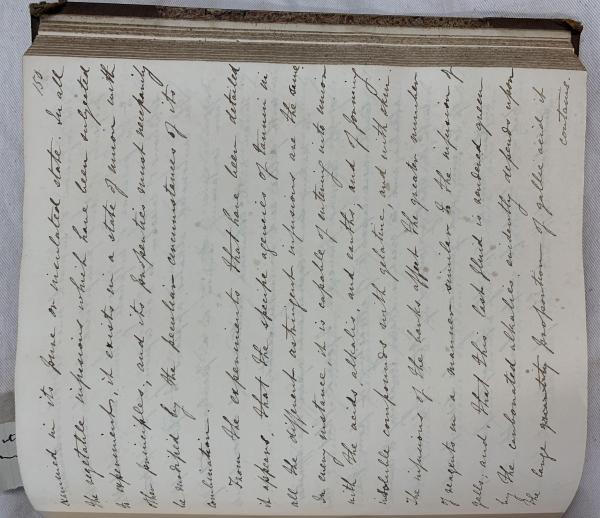 153
in its pure or insulated state. In all
the vegetable infusions which have been subjected
to experiments, it exists in a state of union with
other principles; and its properties must necessarily
be modified by the peculiar circumstances of its
combination.
From the experiments that have been detailed
it appears that the specific agencies of tannin in
all the different astringent infusions are the same.
In every instance it is capable of entering into union
with the acids, alkalis, and earths; and of forming
insoluble compounds with gelatine, and with skin.
The infusions of the barks affect the greater number
of reagents in a manner similar to the infusion of
galls; and, that this last fluid is rendered green
by the carbonated alkalies evidently depends upon
the large quantity proportion of gallic acid it
contains.